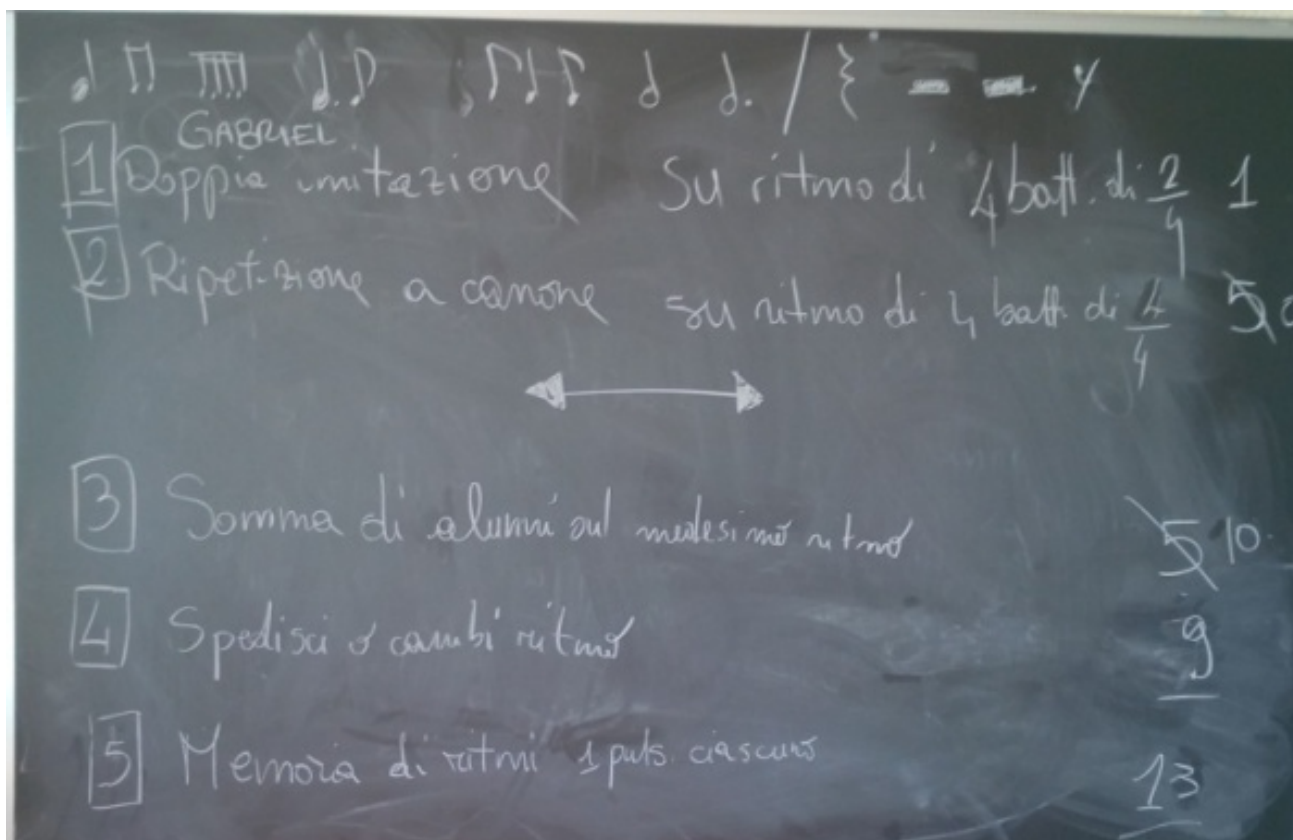 GABRIEL
1 Doppia imitazione su ritmo di 4 batt. di 2/4 1
2 Ripetizione a canone su ritmo di 4 batt. di 4/4 5
3 Somma di alunni sul medesimo ritmo 5 10.
4 Spedisci o cambi ritmo 9
5 Memoria di ritmi 1 puls. ciascuno 13